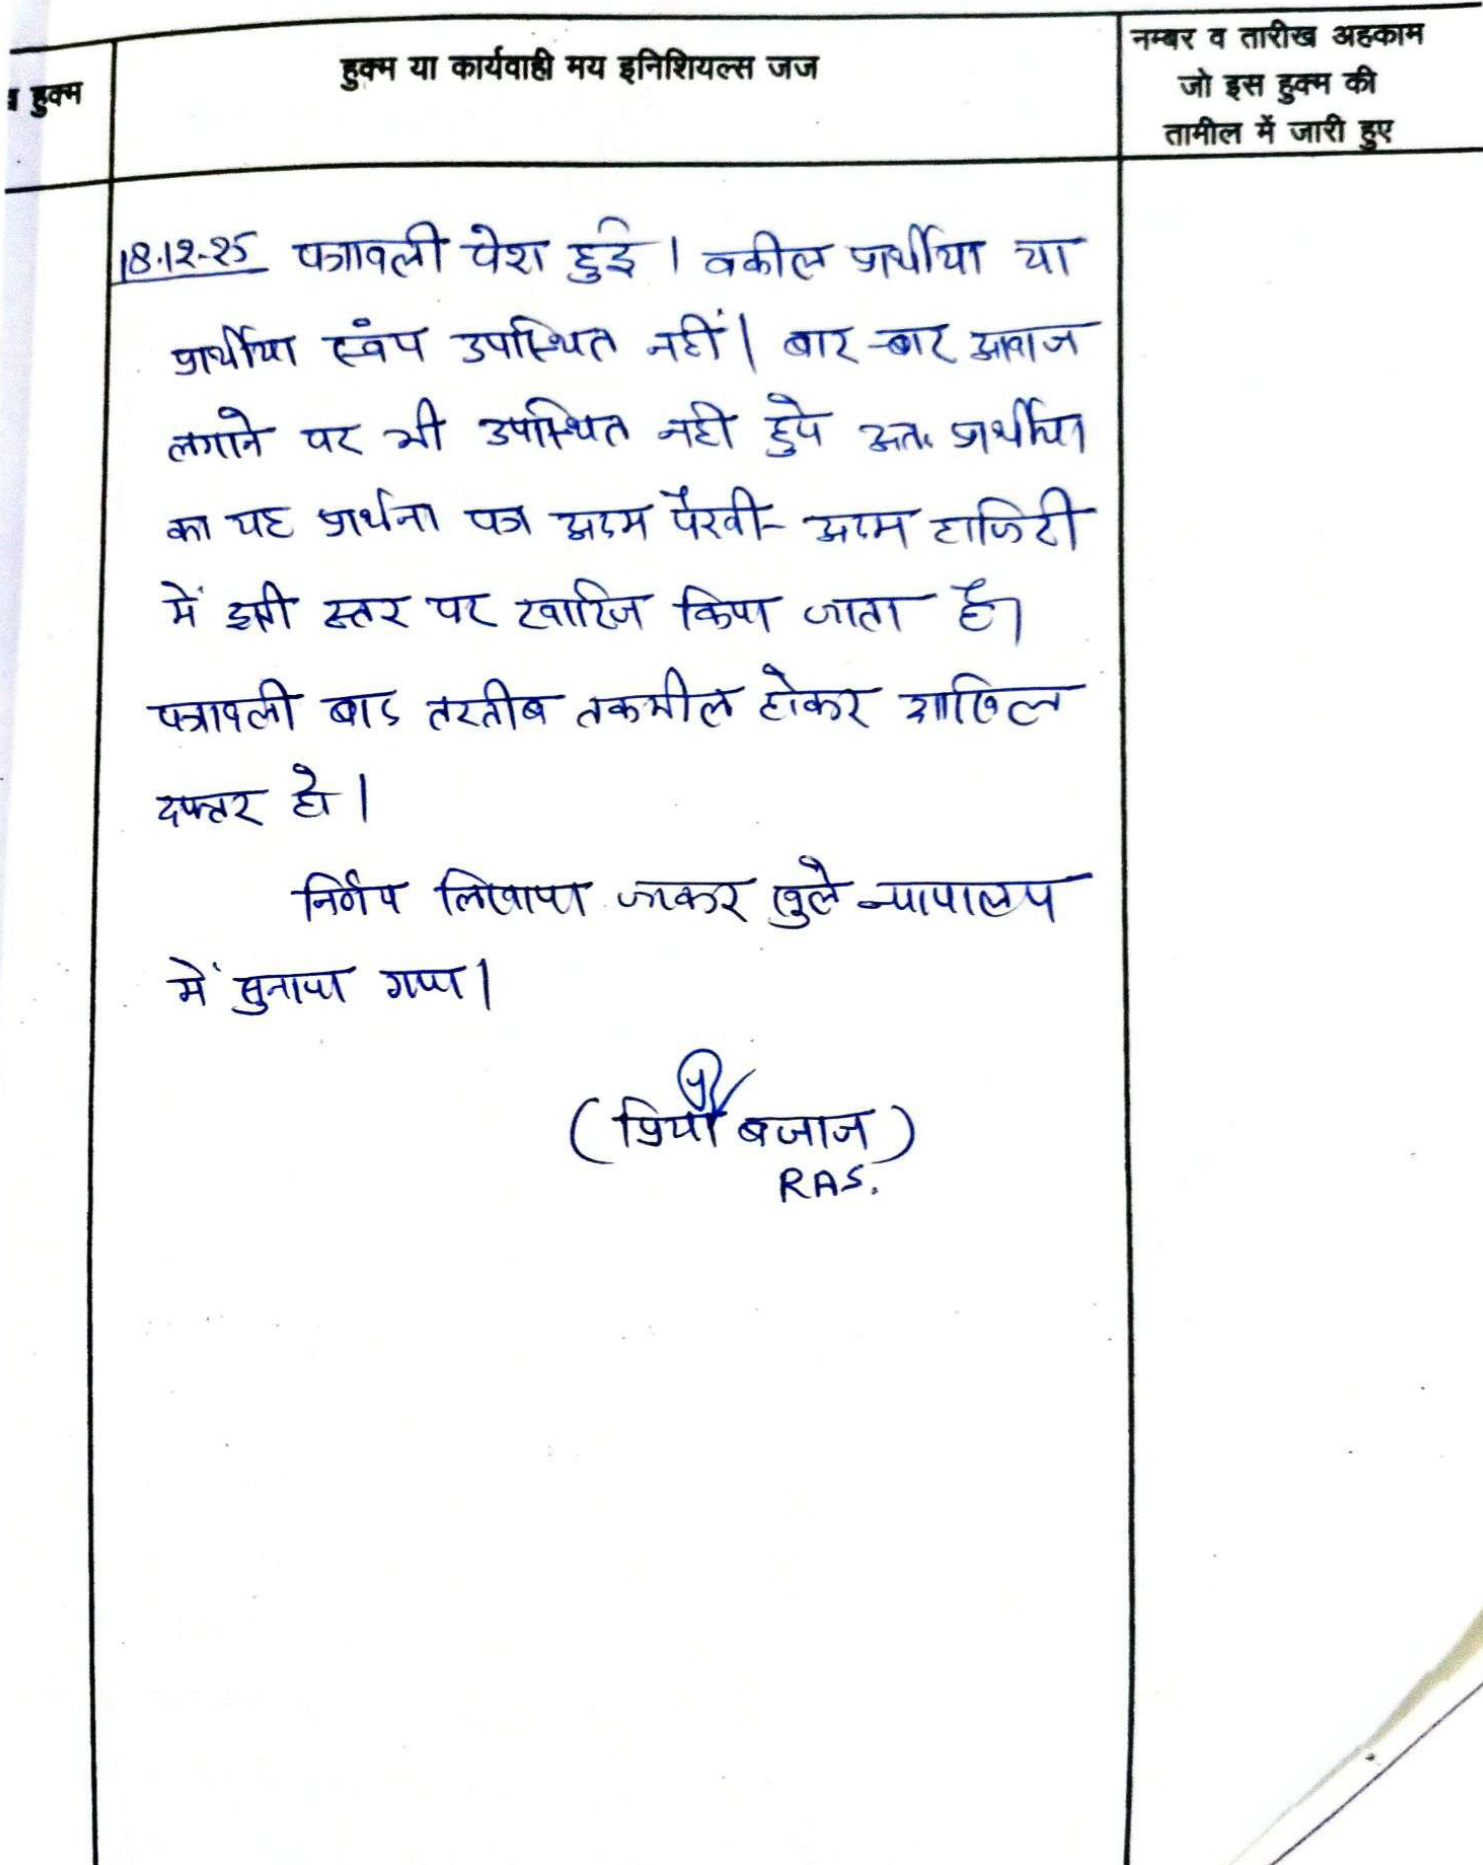 हुक्म
हुक्म या कार्यवाही मय इनिशियल्स जज
नम्बर व तारीख अहकाम
जो इस हुक्म की
तामील में जारी हुए
18.12.25 पत्रावली पेश हुई। वकील प्रार्थीया या
प्रार्थीया स्वंय उपस्थित नहीं। बार-बार आवाज
लगाने पर भी उपस्थित नही हुये अतः प्रार्थीया
का यह प्रार्थना पत्र अदम पैरवी- अदम हाजिरी
में इसी स्तर पर खारिज किया जाता है।
पत्रावली बाद तरतीब तकमील होकर दाखिल
दफ्तर हो।
निर्णय लिखाया जाकर खुले न्यायालय
में सुनाया गया।
(प्रिया बजाज)
RAS.